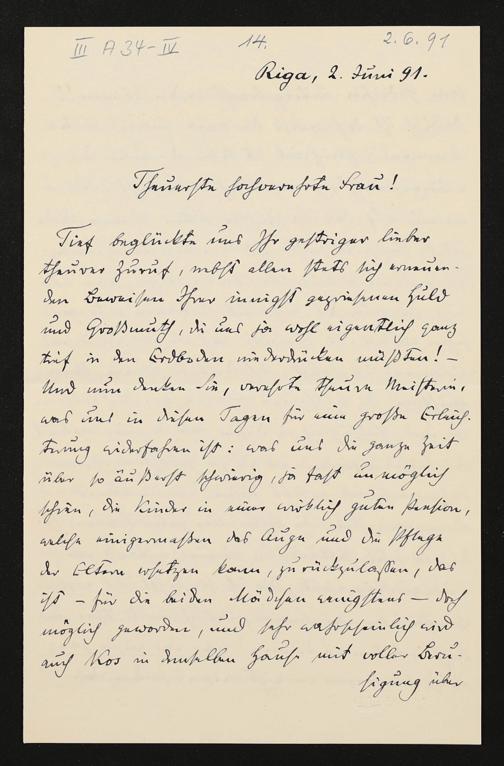 III A 34-IV
14.
2.6.91
Riga, 2. Juni 91.
Theuerste hochverehrte Frau!
Tief beglückte uns Ihr gestriger lieber
theurer Zuruf, nebst allen stets sich erneuen-
den Beweisen Ihrer innigst gepriesenen Huld
und Großmuth, die uns ja wohl eigentlich ganz
tief in den Erdboden niederdrücken müßten! –
Und nun denken Sie, verehrte theure Meisterin,
was uns in diesen Tagen für eine große Erleich-
terung widerfahren ist: was uns die ganze Zeit
über so äußerst schwierig, ja fast unmöglich
schien, die Kinder in einer wirklich guten Pension,
welche einigermaßen das Auge und die Pflege
der Eltern ersetzen kann, zurückzulassen, das
ist – für die beiden Mädchen wenigstens – doch
möglich geworden, und sehr wahrscheinlich wird
auch Kos in demselben Hause mit voller Beru-
higung über